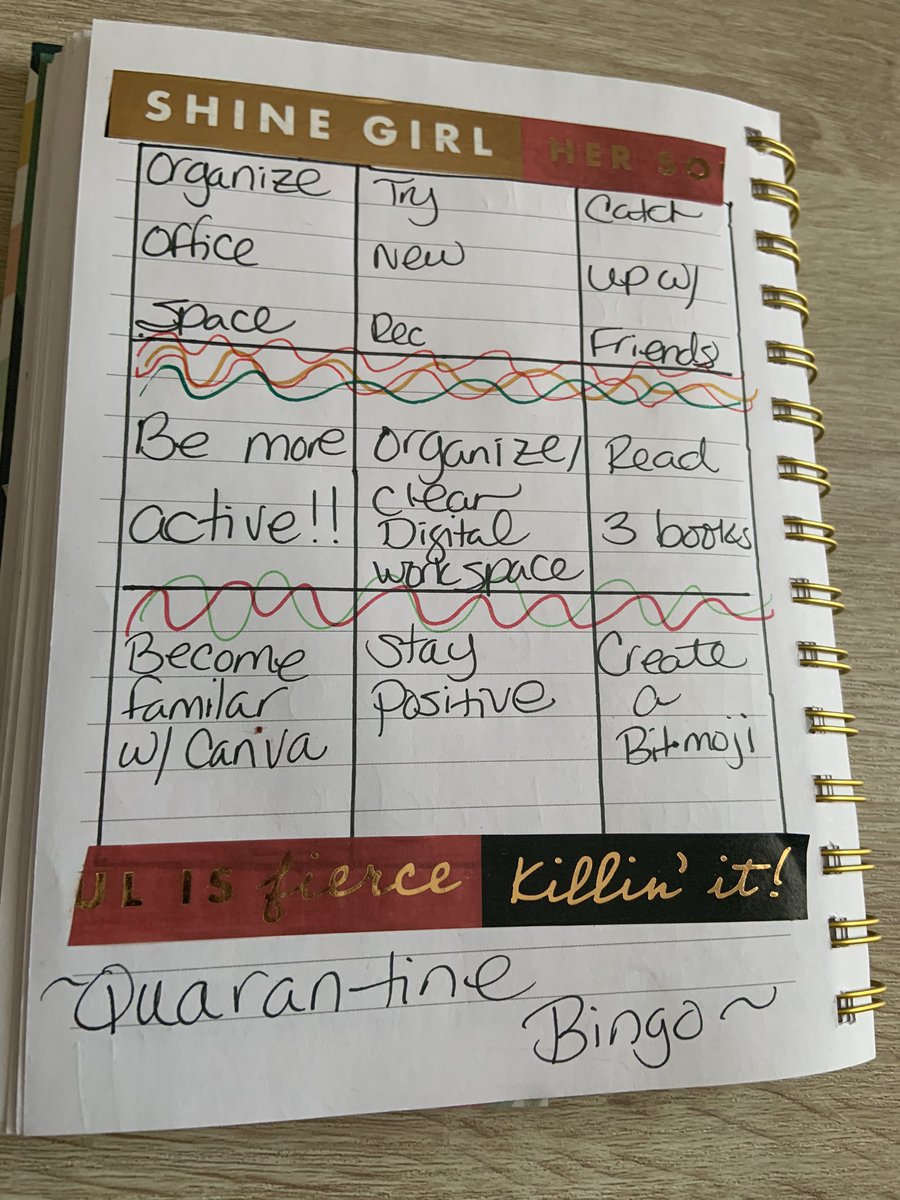 SHINE GIRL HER SO
Organize
Office
Space
Try
New
Rec
Catch
up w/
Friends
Be more
active!!
Organize/
Clear
Digital
workspace
Read
3 books
Become
familar
w/ Caniva
Stay
Positive
Create
a
Bitmoji
UL IS fierce Killin' it!
~Quarantine
Bingo~